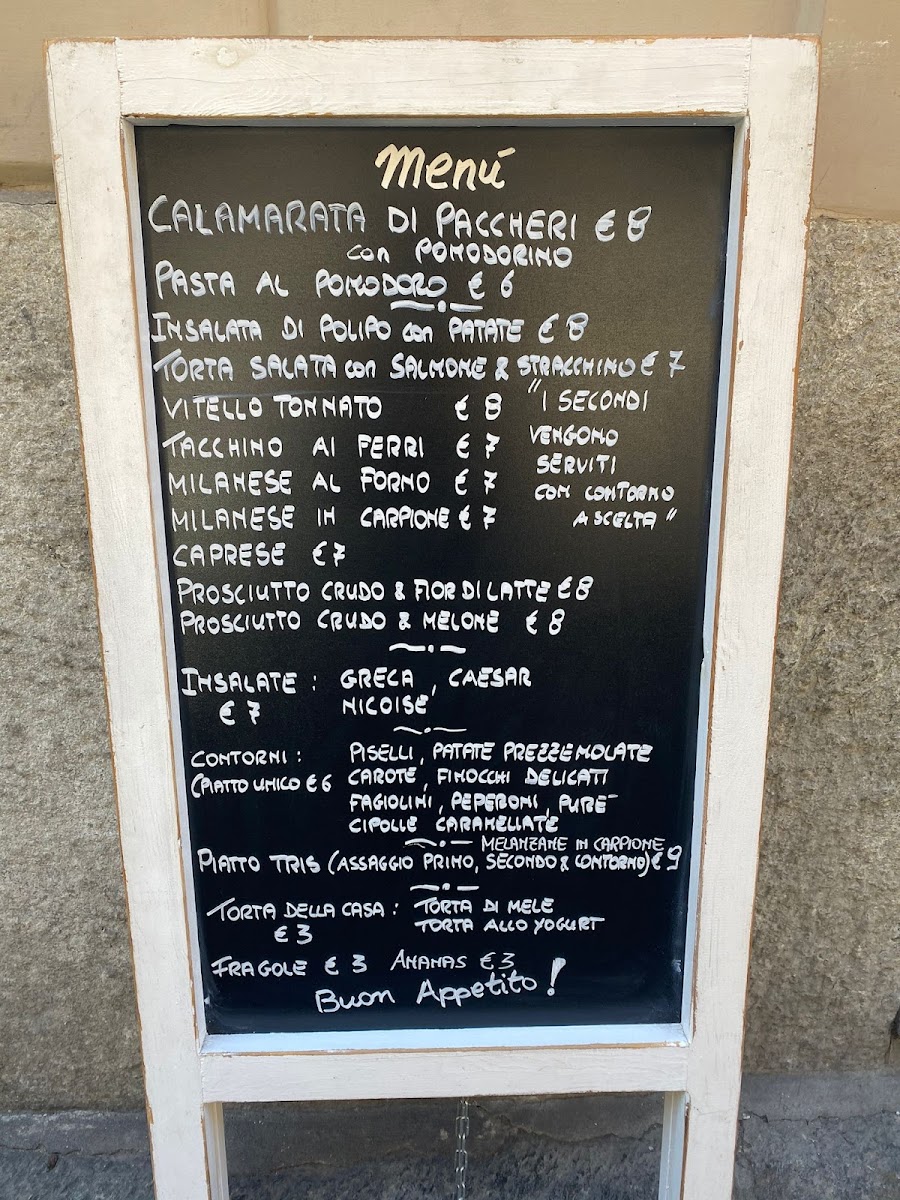 Menú
CALAMARATA DI PACCHERI € 8
con POMODORINO
PASTA AL POMODORO € 6
INSALATA DI POLIPO con PATATE € 8
TORTA SALATA con SALMONE & STRACCHINO € 7
VITELLO TONNATO € 8
TACCHINO AI FERRI € 7
MILANESE AL FORNO € 7
MILANESE IN CARPIONE € 7
"I SECONDI
VENGONO
SERVITI
CON CONTORNO
A SCELTA"
CAPRESE €7
PROSCIUTTO CRUDO & FIOR DI LATTE €8
PROSCIUTTO CRUDO & MELONE €8
INSALATE : GRECA, CAESAR
€ 7 NICOISE
CONTORNI : PISELLI, PATATE PREZZEMOLATE
(PIATTO UNICO €6 CAROTE, FINOCCHI DELICATI
FAGIOLINI, PEPERONI, PURE'
CIPOLLE CARAMELLATE
MELANZANE IN CARPIONE
PIATTO TRIS (ASSAGGIO PRIMO, SECONDO & CONTORNO) € 9
TORTA DELLA CASA : TORTA DI MELE
€ 3 TORTA ALLO YOGURT
FRAGOLE € 3 ANANAS € 3
Buon Appetito!